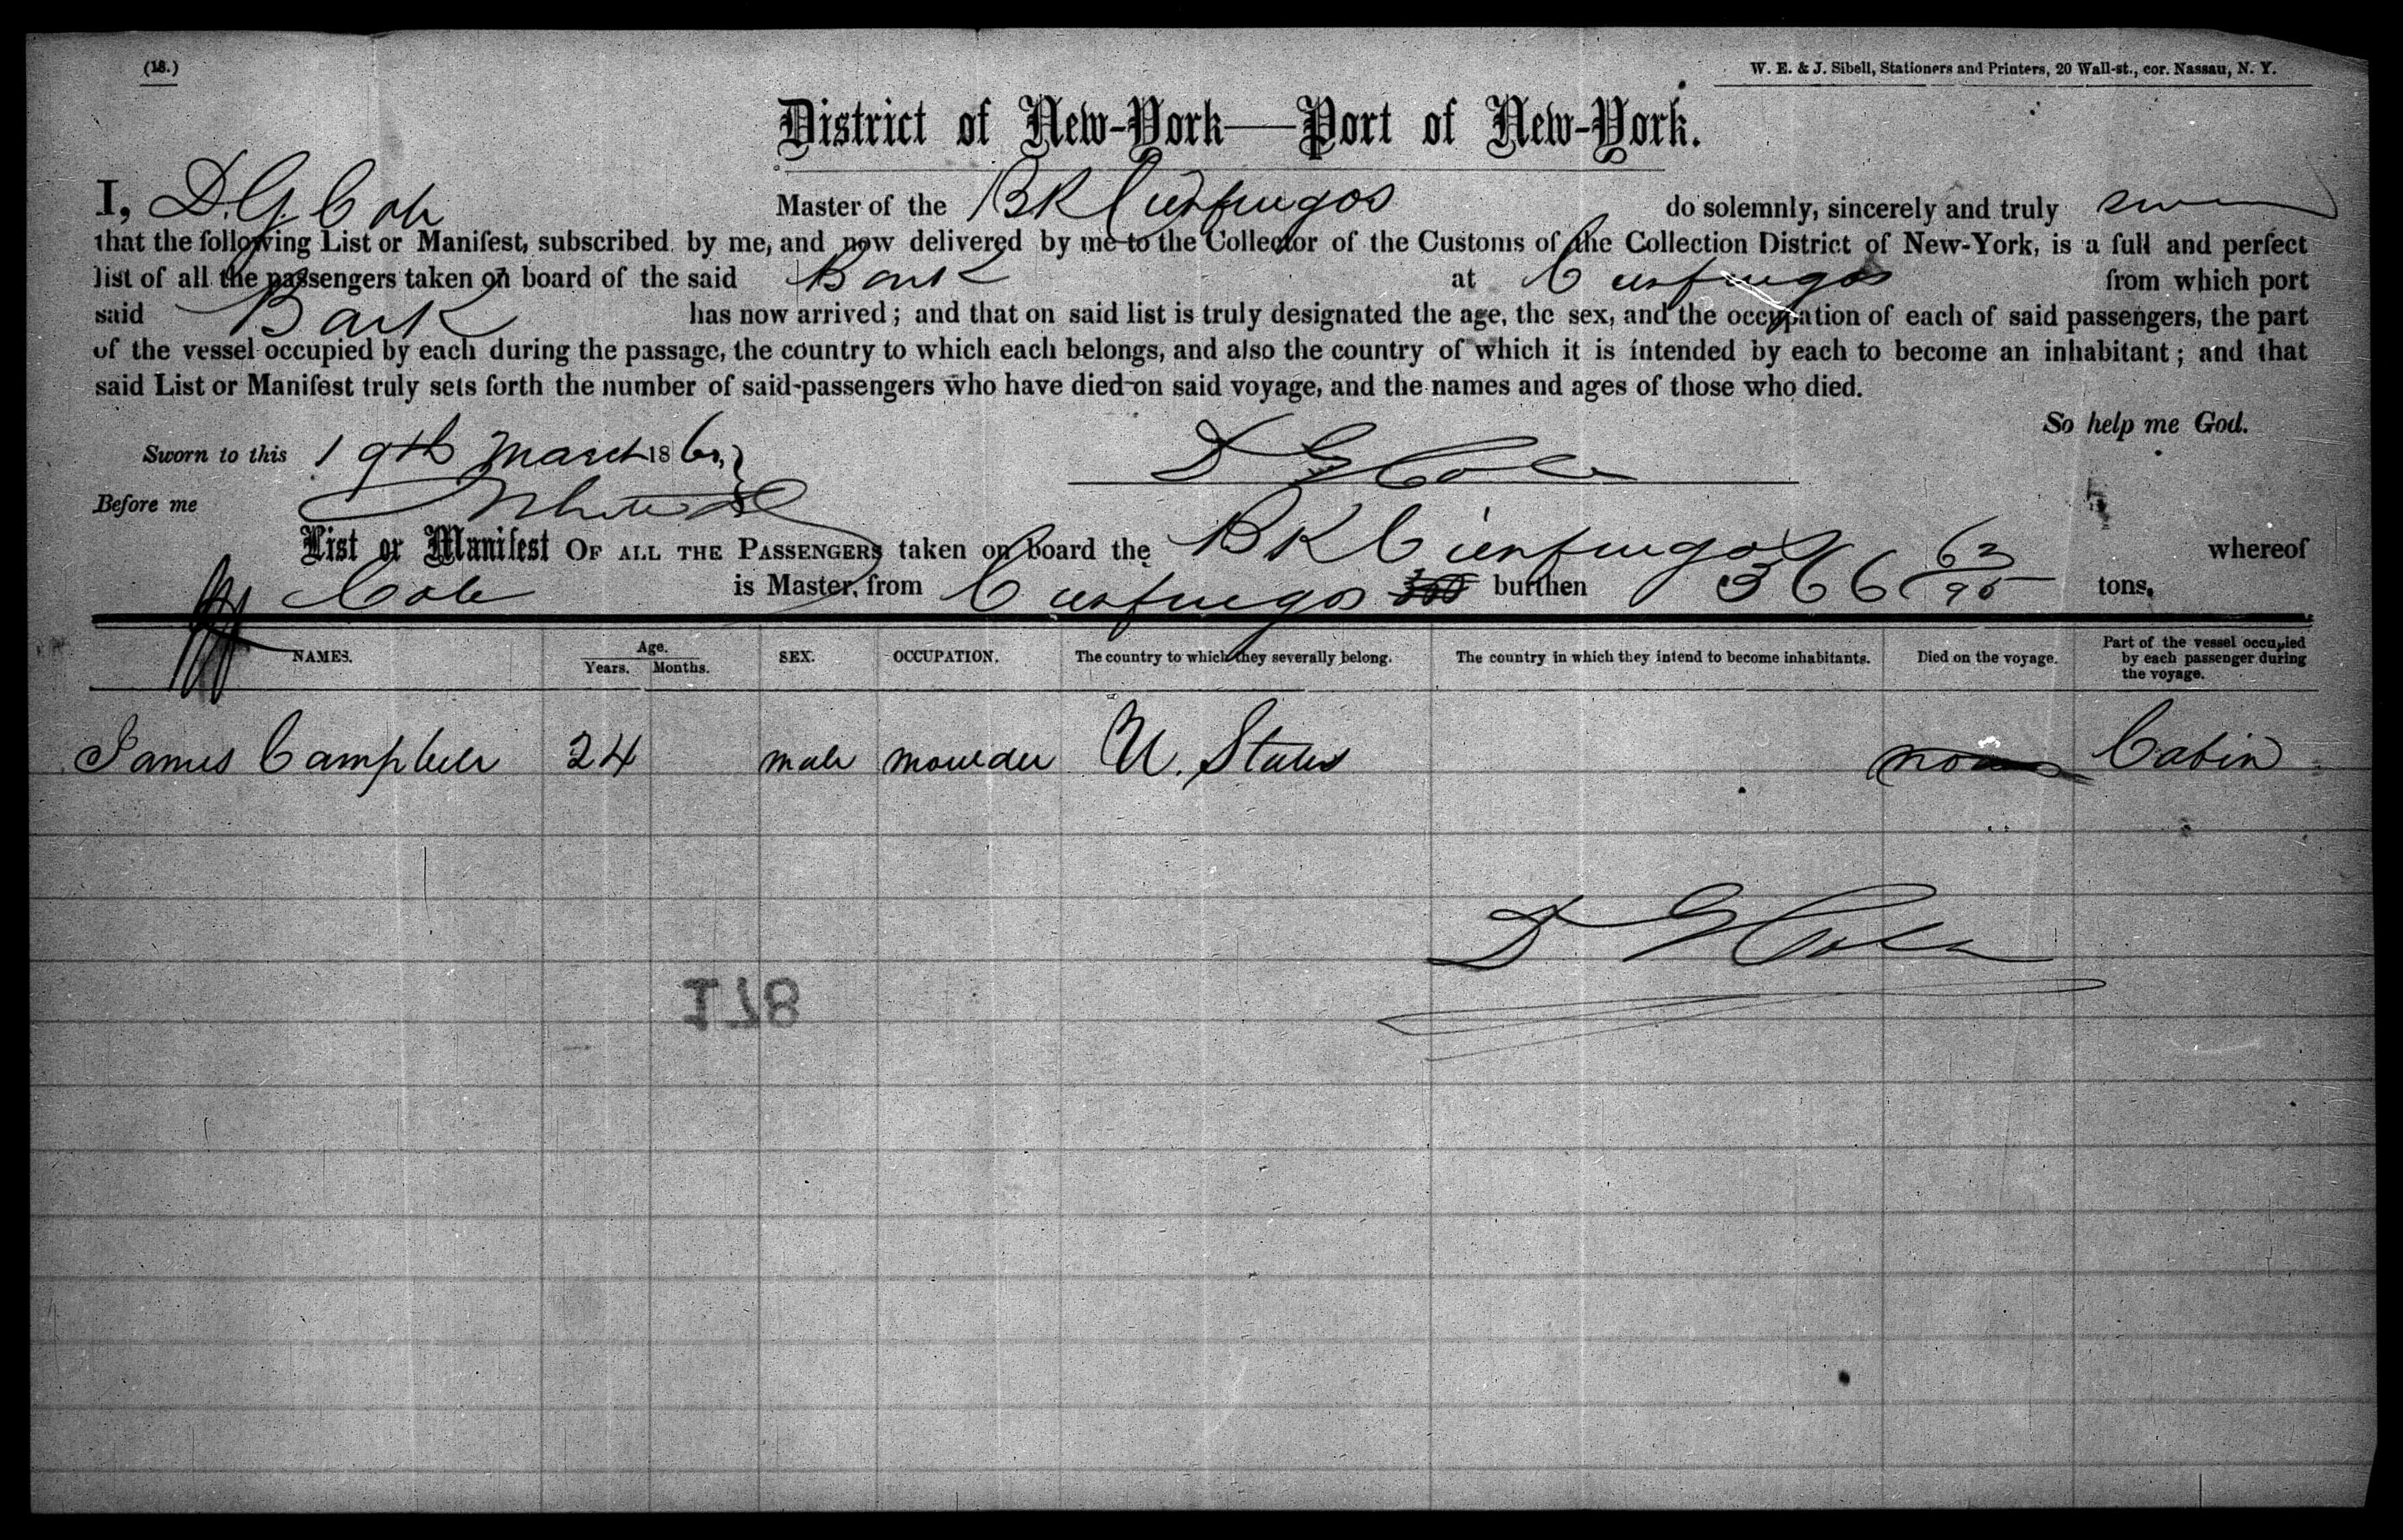 (18.)
W. E. & J. Sibell, Stationers and Printers, 20 Wall-st., cor. Nassau, N. Y.
District of New-York—Port of New-York.
I, D. G. Cole Master of the BK Cienfuegos do solemnly, sincerely and truly swear
that the following List or Manifest, subscribed by me, and now delivered by me to the Collector of the Customs of the Collection District of New-York, is a full and perfect
list of all the passengers taken on board of the said Bark at Cienfuegos from which port
said Bark has now arrived; and that on said list is truly designated the age, the sex, and the occupation of each of said passengers, the part
of the vessel occupied by each during the passage, the country to which each belongs, and also the country of which it is intended by each to become an inhabitant; and that
said List or Manifest truly sets forth the number of said passengers who have died on said voyage, and the names and ages of those who died.
So help me God.
Sworn to this 19th March 186
D G Cole
Before me
List or Manifest OF ALL THE PASSENGERS taken on board the BK Cienfuegos whereof
Cole is Master, from Cienfuegos burthen 366 62/95 tons.
NAMES. Age. Years. Months. SEX. OCCUPATION. The country to which they severally belong. The country in which they intend to become inhabitants. Died on the voyage. Part of the vessel occupied by each passenger during the voyage.
James Campbell 24 male moulder U. States Cabin
D G Cole
178